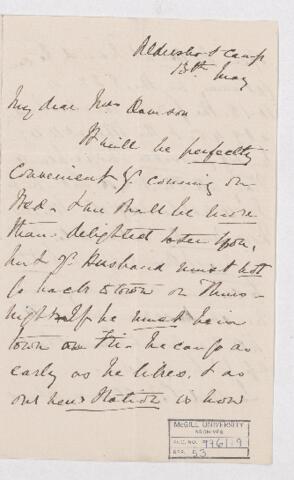 Aldershot Camp
13th May
My dear Mrs Dawson
It will be perfectly
convenient yr coming on
Wed. & we shall be more
than delighted to see you,
but yr Husband must not
go back to town on Thurs
night. If he must be in
town on Fri. he can go as
early as he likes, & as
our new Station is now
McGILL UNIVERSITY
ARCHIVES
ACC. NO. 976/19
REF. 53